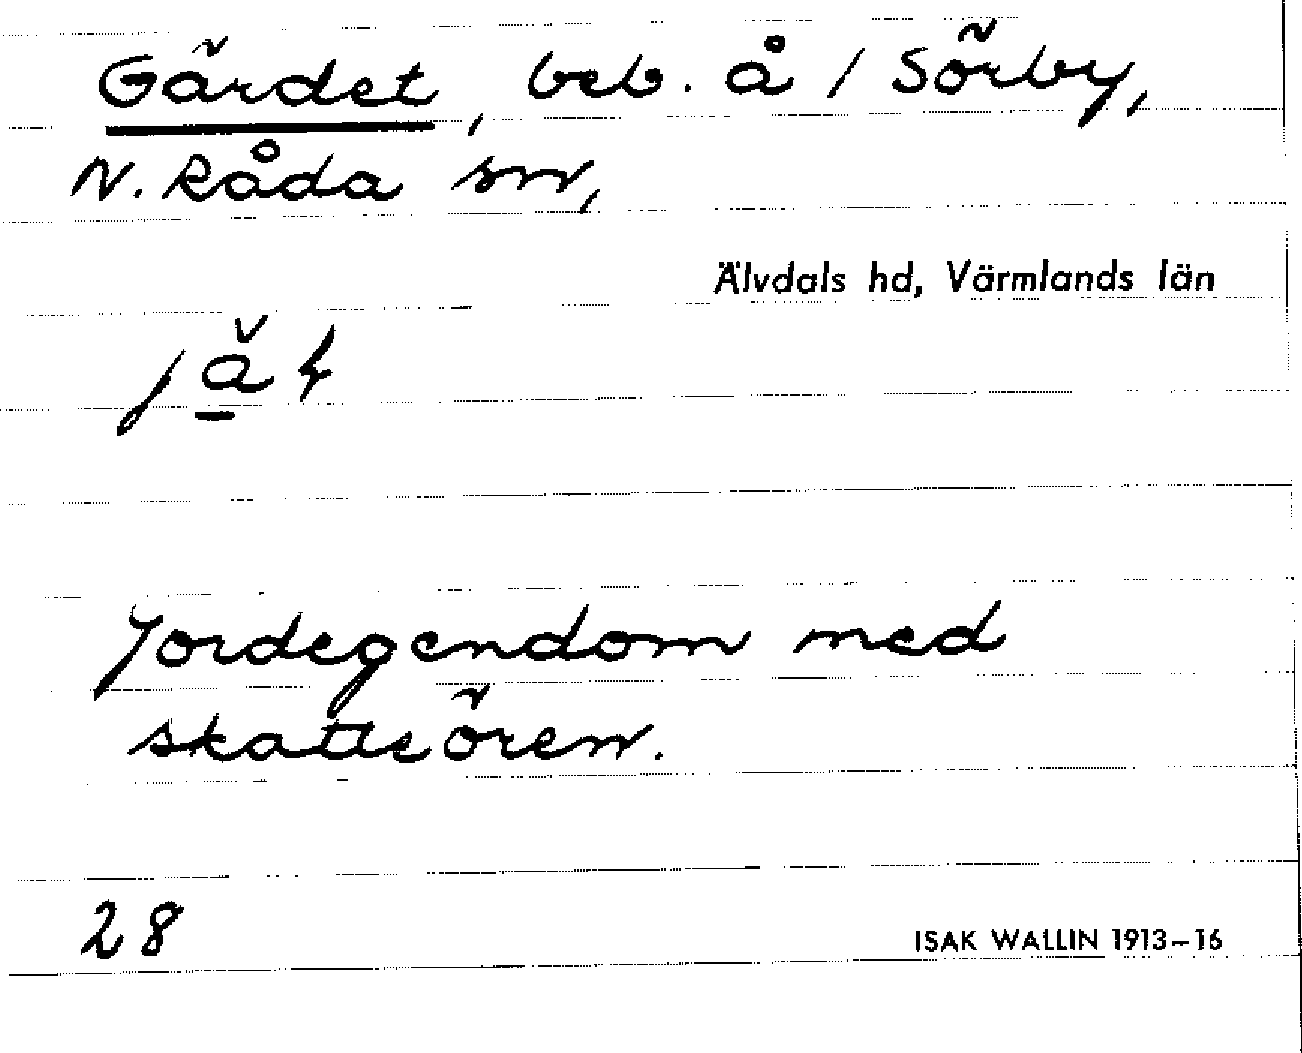 Gärdet, beb. å / Sörby,
N. Råda sn,
Älvdals hd, Värmlands län
Jordegendom med
skatteören.
28
ISAK WALLIN 1913–16